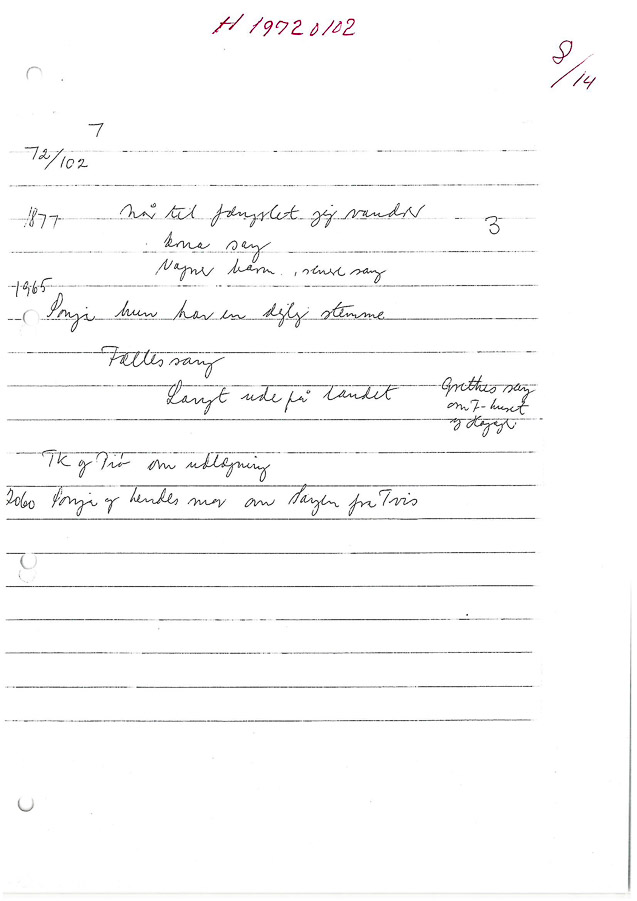 H 19720102
8/14
7
72/102
1877 Når til fængslet jeg vandrer 3
Anna sang
Vagner barn, senere sang
1965
Sonja hun har en dejlig stemme
Fælles sang
Langt ude på landet
Grethes sang
om F-huset
og
TK og Trø om udlægning
2060 Sonja og hendes mor om Sangen fra Tvis